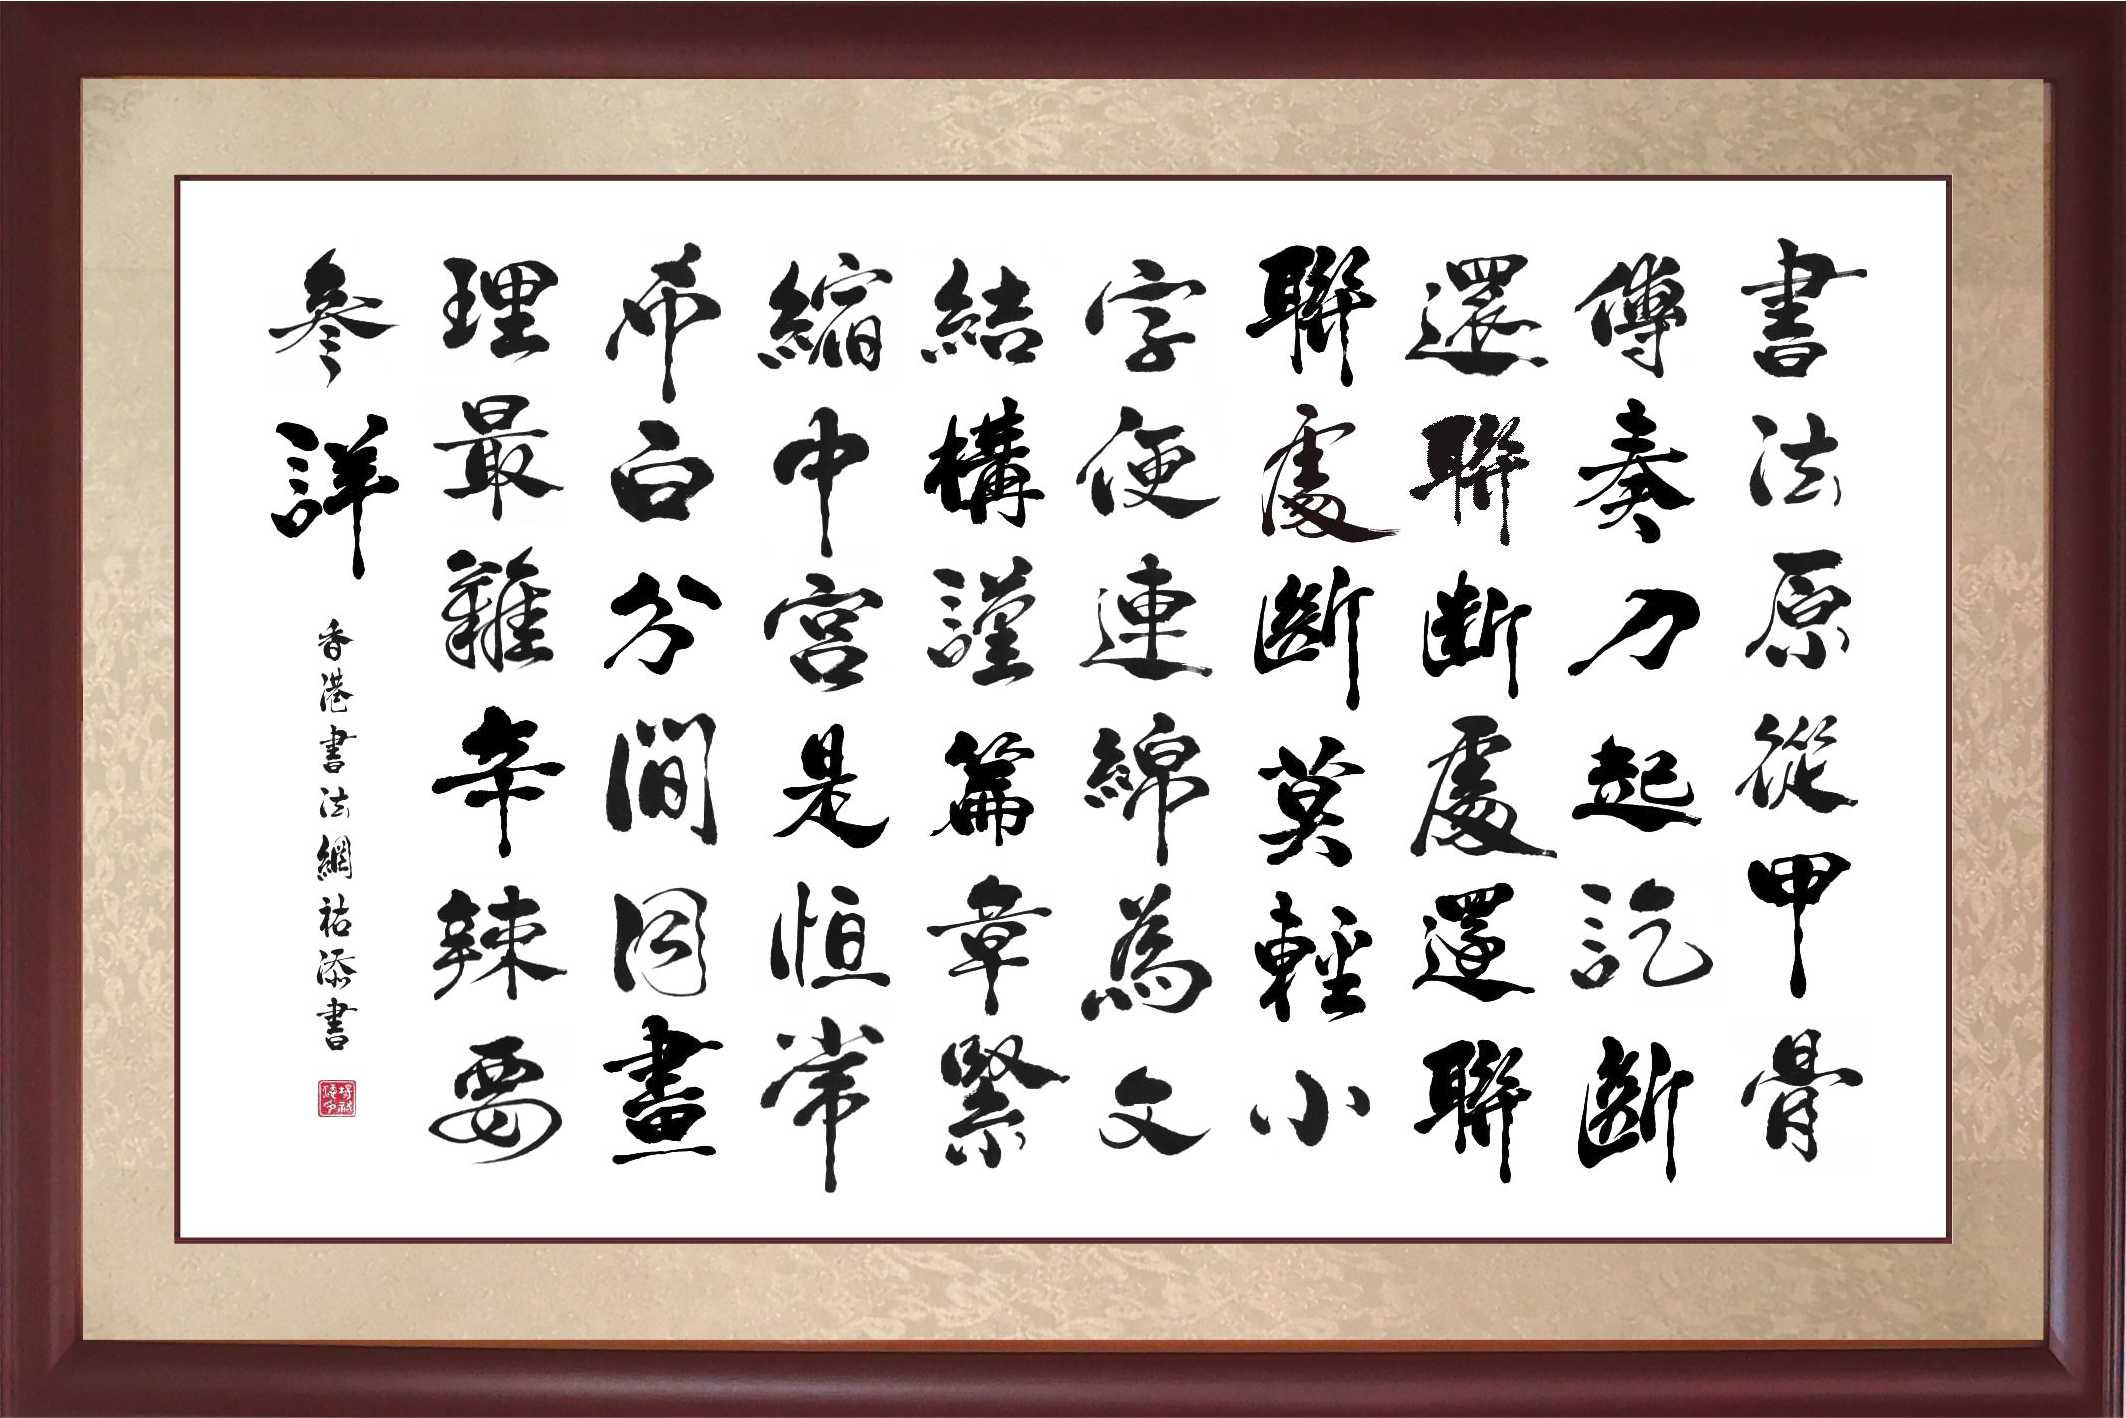 書法原從甲骨
傳奏刀起訖斷
還聯斷處還聯
聯處斷莫輕小
字便連綿為文
結構謹篇章緊
縮中宮是恒常
希白分間同畫
理最難辛辣要
參詳
香港書法網祐添書